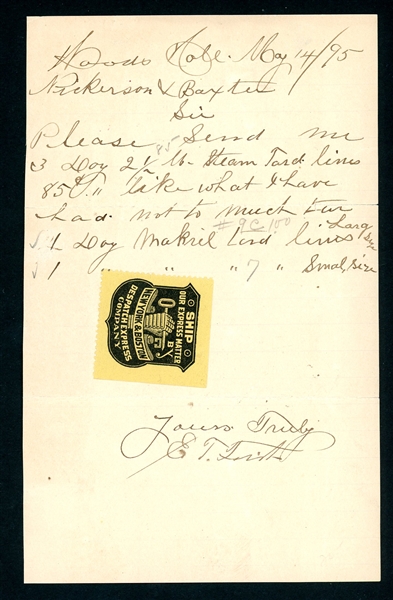 Woods Hole May 14/95
Nickerson & Baxter
Sir
Please Send me
3 Doz 2 lb Steam Tard lines
85 " like what I have
had not to much Tar
#9C100
1 Doz Makril Tard lines Larg size
1 " " " 7 " Small, size
SHIP
OUR EXPRESS MATTER
BY
NEW YORK & BOSTON
DESPATCH EXPRESS
COMPANY
Yours Truly
E T.